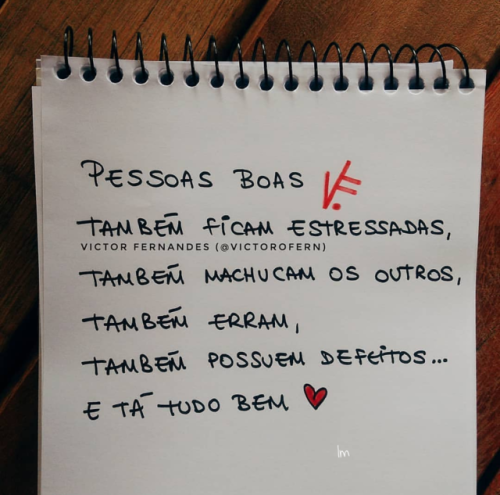 PESSOAS BOAS VF.
TAMBÉM FICAM ESTRESSADAS,
VICTOR FERNANDES (@VICTOROFERN)
TAMBÉM MACHUCAM OS OUTROS,
TAMBÉM ERRAM,
TAMBÉM POSSUEM DEFEITOS...
E TÁ TUDO BEM
lm